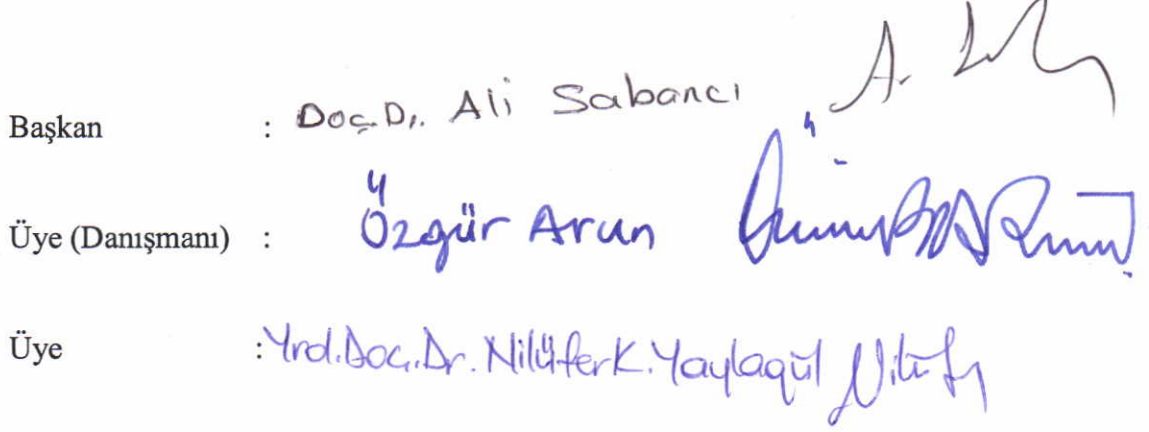 Başkan : Doç.Dr. Ali Sabancı
Üye (Danışmanı) : Özgür Arun
Üye : Yrd.Doç.Dr. Nilüfer K. Yaylagül